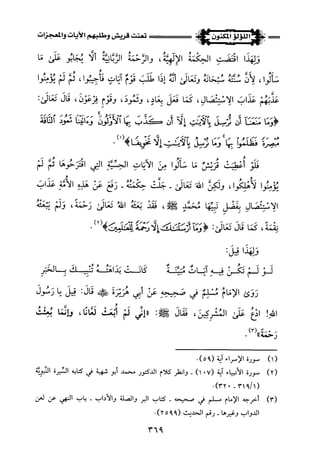 اللؤلؤ المكنون
تعنت قريش وطلبهم الآيات والمعجزات
وَلِهَذَا اقْتَضَتِ الحِكْمَةُ الإلَهِيَّةُ، والرَّحْمَةُ الرَّبَّانِيَّةُ أَلَّا يُجَابُو عَلَى مَا
سَأَلُوا، لِأَنَّ سُنَّتَهُ سُبْحَانَهُ وَتَعَالَى أَنَّهُ إِذَا طَلَبَ قَوْمٌ آيَاتٍ فَأُجِيبُوا، ثُمَّ لَمْ يُؤْمِنُوا
عَذَّبَهُمْ عَذَابَ الِاسْتِئْصَالِ، كَمَا فَعَلَ بِعَادٍ، وثَمُودَ، وقَوْمِ فِرْعَوْنَ، قَالَ تَعَالَى:
﴿وَمَا مَنَعَنَا أَن نُّرْسِلَ بِالْآيَاتِ إِلَّا أَن كَذَّبَ بِهَا الْأَوَّلُونَ وَآتَيْنَا ثَمُودَ النَّاقَةَ
مُبْصِرَةً فَظَلَمُوا بِهَا وَمَا نُرْسِلُ بِالْآيَاتِ إِلَّا تَخْوِيفًا﴾(١).
فَلَوْ أُعْطِيَتْ قُرَيْشٌ مَا سَأَلُوا مِنَ الآيَاتِ الحِسِّيَّةِ التِي اقْتَرَحُوهَا ثُمَّ لَمْ
يُؤْمِنُوا لَأُهْلِكُوا، ولَكِنَّ اللهَ تَعَالَى ـ جَلَّتْ حِكْمَتُهُ ـ رَفَعَ عَنْ هَذِهِ الأُمَّةِ عَذَابَ
الِاسْتِئْصَالِ بِفَضْلِ نَبِيِّهَا مُحَمَّدٍ ﷺ، فَقَدْ بَعَثَهُ اللهُ تَعَالَى رَحْمَةً، ولَمْ يَبْعَثْهُ
نِقْمَةً، كَمَا قَالَ تَعَالَى: ﴿وَمَا أَرْسَلْنَاكَ إِلَّا رَحْمَةً لِّلْعَالَمِينَ﴾(٢).
ولِهَذَا قِيلَ:
لَوْ لَمْ تَكُنْ فِيهِ آيَاتٌ مُبَيِّنَةٌ كَانَتْ بَدَاهَتُهُ تُنْبِيكَ بِالخَبَرِ
رَوَى الإِمَامُ مُسْلِمٌ فِي صَحِيحِهِ عَنْ أَبِي هُرَيْرَةَ ﷺ قَالَ: قِيلَ يا رَسُولَ
اللهِ! ادْعُ عَلَى المُشْرِكِينَ، فَقَالَ ﷺ: «إِنِّي لَمْ أُبْعَثْ لَعَّانًا، وإِنَّمَا بُعِثْتُ
رَحْمَةً»(٣).
(١) سورة الإسراء آية (٥٩).
(٢) سورة الأنبياء آية (١٠٧) ـ وانظر كلام الدكتور محمد أبو شهبة في كتابه السِّيرة النَّبوِيَّة
(٣١٩/١ ـ ٣٢٠).
(٣) أخرجه الإمام مسلم في صحيحه ـ كتاب البر والصلة والآداب ـ باب النهي عن لعن
الدواب وغيرها ـ رقم الحديث (٢٥٩٩).
٣٦٩